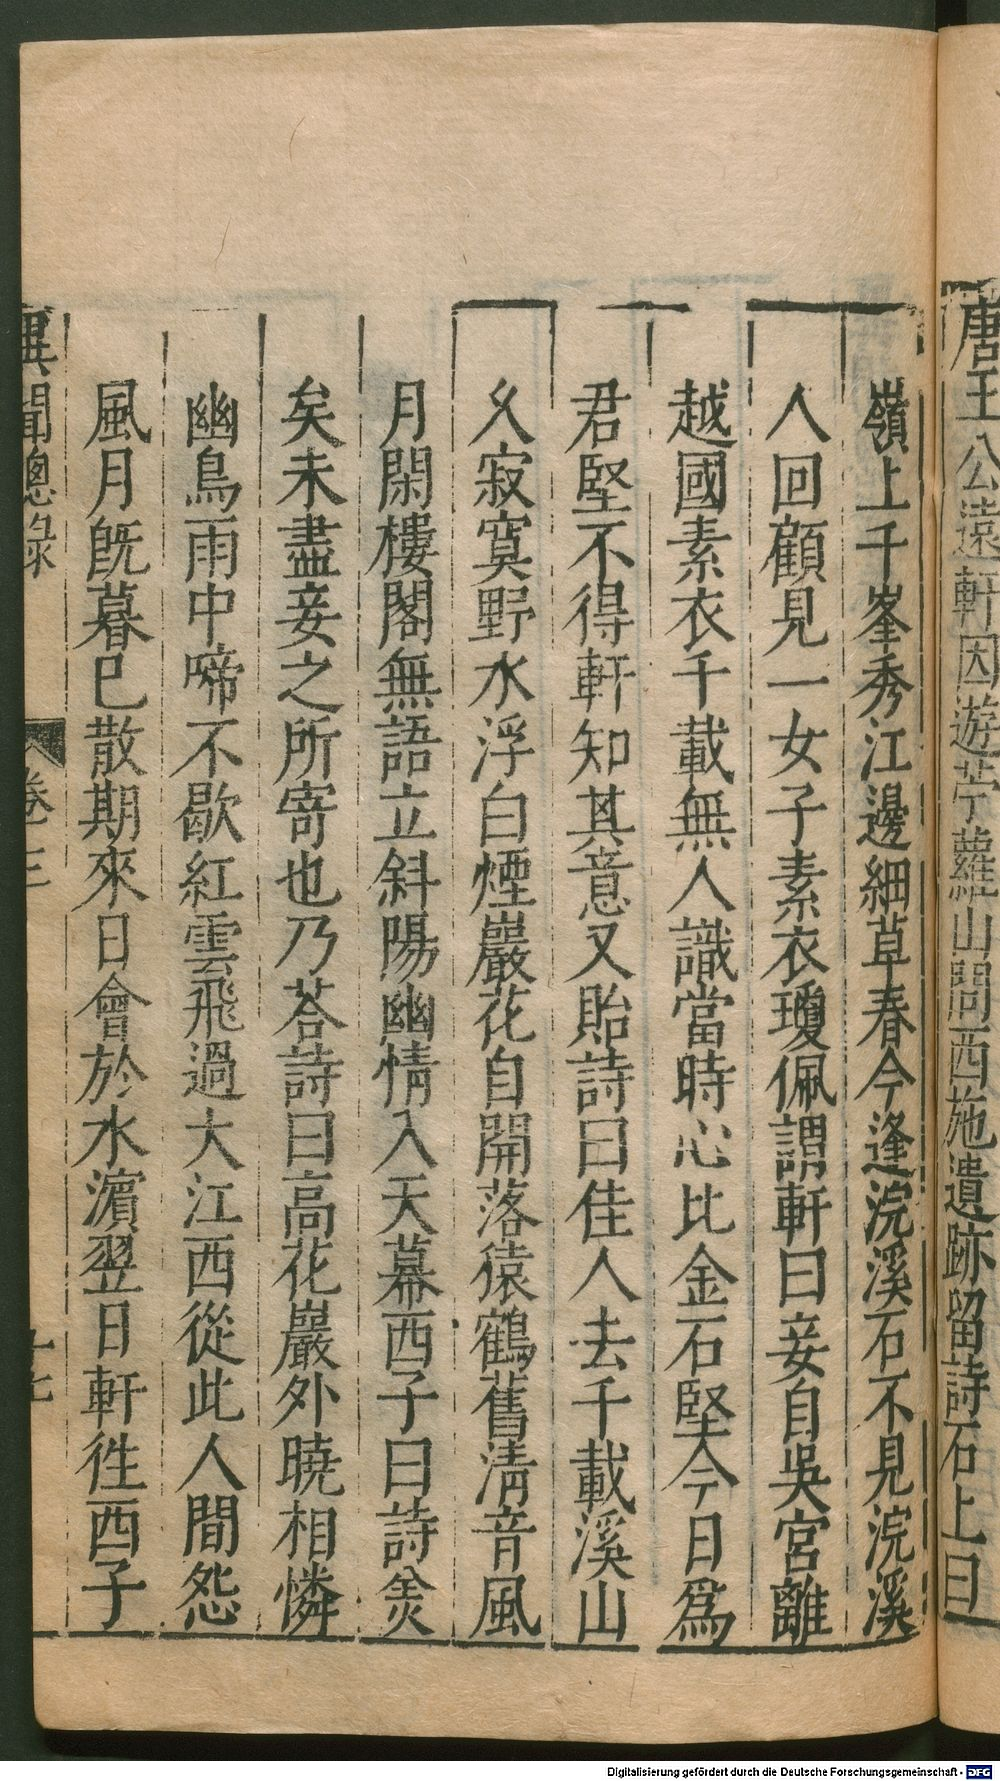 唐王公遠軒因遊苧蘿山問西施遺跡留詩石上曰
嶺上千峯秀江邊細草春今逢浣溪石不見浣溪
人回顧見一女子素衣瓊佩謂軒曰妾自吳宮離
越國素衣千載無人識當時心比金石堅今日爲
君堅不得軒知其意又貽詩曰佳人去千載溪山
久寂寞野水浮白煙巖花自開落猿鶴舊清音風
月閑樓閣無語立斜陽幽情入天幕西子曰詩美
矣未盡妾之所寄也乃荅詩曰高花巖外曉相憐
幽鳥雨中啼不歇紅雲飛過大江西從此人間怨
風月旣暮已散期來日會於水濵翌日軒徃西子
異聞總錄 卷三 十七
Digitalisierung gefördert durch die Deutsche Forschungsgemeinschaft - DFG